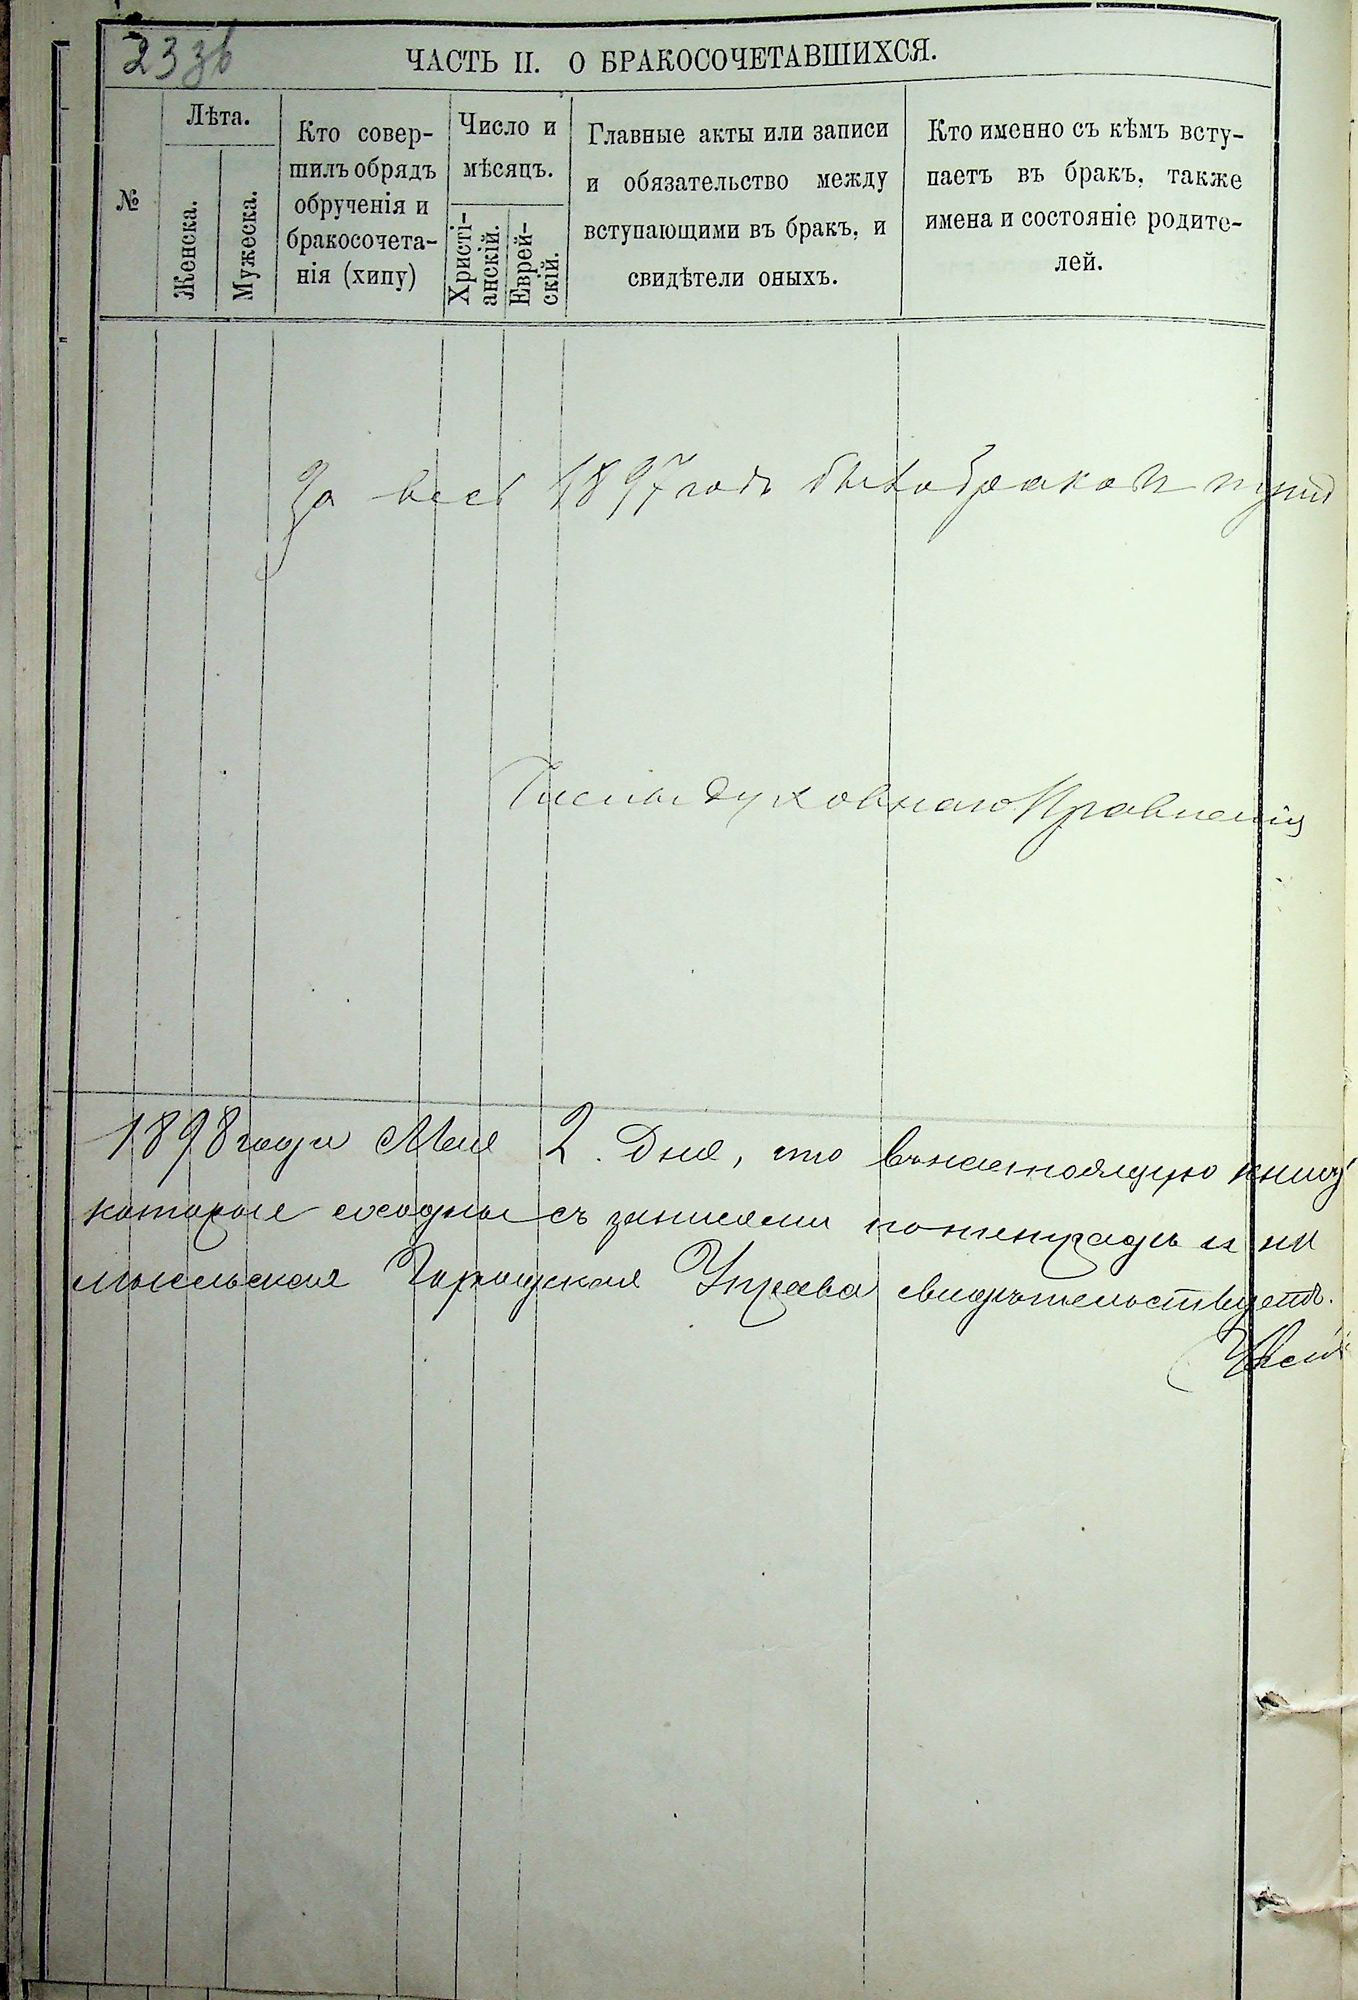 23 зв
ЧАСТЬ II. О БРАКОСОЧЕТАВШИХСЯ.
№
Лѣта.
Женска.
Мужеска.
Кто совер-
шилъ обрядъ
обрученія и
бракосочета-
нія (хипу)
Число и
мѣсяцъ.
Христі-
анскій.
Еврей-
скій.
Главные акты или записи
и обязательство между
вступающими въ бракъ, и
свидѣтели оныхъ.
Кто именно съ кѣмъ всту-
паетъ въ бракъ, также
имена и состояніе родите-
лей.
За весь 1897 годъ было браковъ
духовнаго Правленія
1898 года Мая 2 дня, что въ настоящую книгу
которая сходна съ записями по тетради и на
мысльская Городская Управа свидѣтельствуетъ.